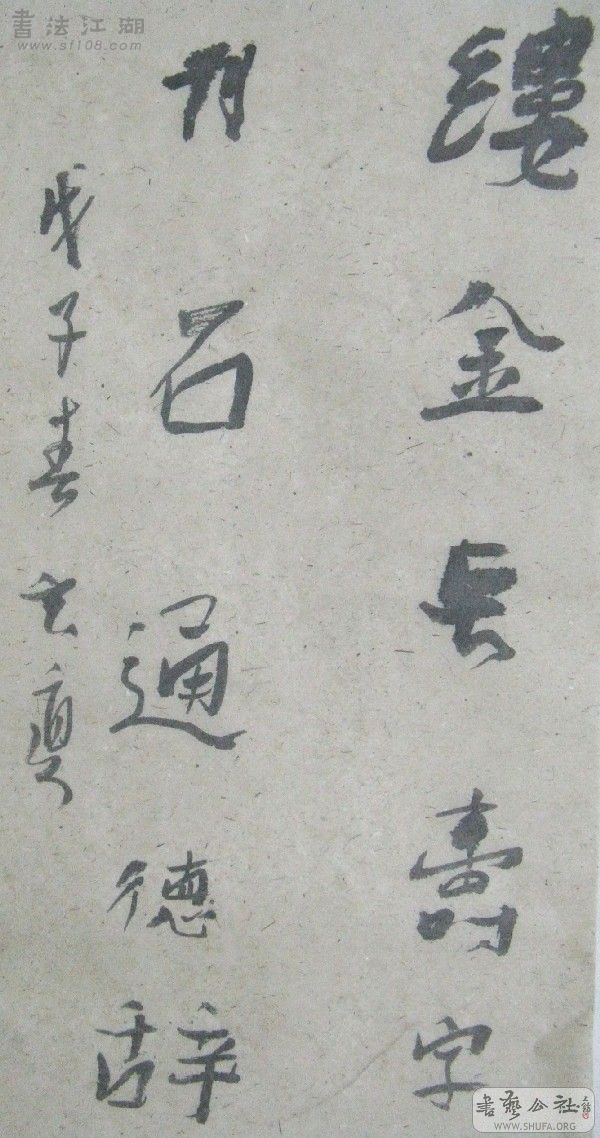 縷金长壽字
刊石通德辞
戊子春
書法江湖
www.sf108.com
書藝公社
WWW.SHUFA.ORG